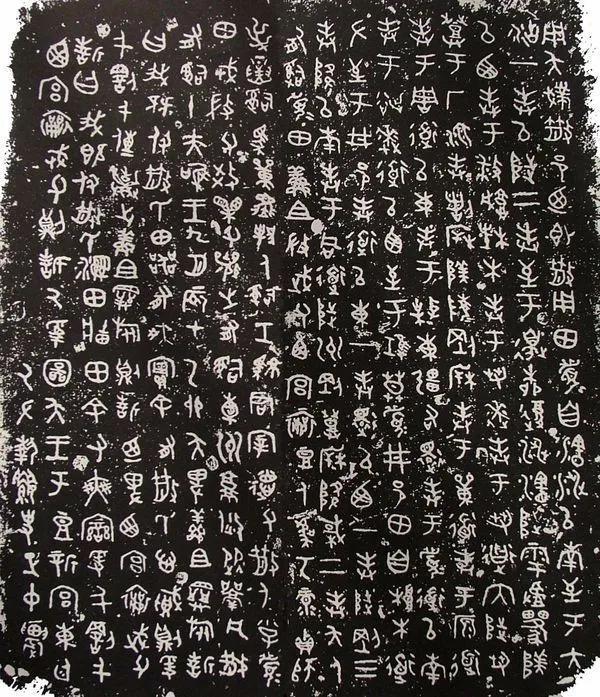 用夨𢦏散邑乃即散用田眉自瀗涉以南至于大
沽一封以陟二封至于邊柳復涉瀗陟雩
以西封于播城楮木封于芻逨封于芻道内陟芻
登于厂湶封剖陵剛封于道封于原道
封于周道以東封于東疆右還封于眉道以南
封于逨道以西至于莫眉井邑田自根木道
左至于井邑封道以東一封還以西一封陟剛三
封降以南封于同道陟州剛登降棫二封夨人
有司眉田鮮且微武父西宮襄豆人虞丂彔貞師
氏右眚小門人繇原人虞艿淮司工虎孝龠豐父
人有司刑丂凡十又五夫正眉夨舍散田司土
屰寅司馬單邦人司工君宰德父散人小子
眉田戎微父效父襄之有司橐州就焂從凡散
有司十夫唯王九月辰才乙卯夨卑鮮且旅誓
曰我既付散氏田器有爽實余有散氏心賊則爰
千罰千傳棄之鮮且旅則誓乃卑西宮襄武父
誓曰我既付散氏溼田田余有爽變爰千罰千
西宮襄武父則誓厥受圖夨王于豆新宮東廷
厥左執史正中農